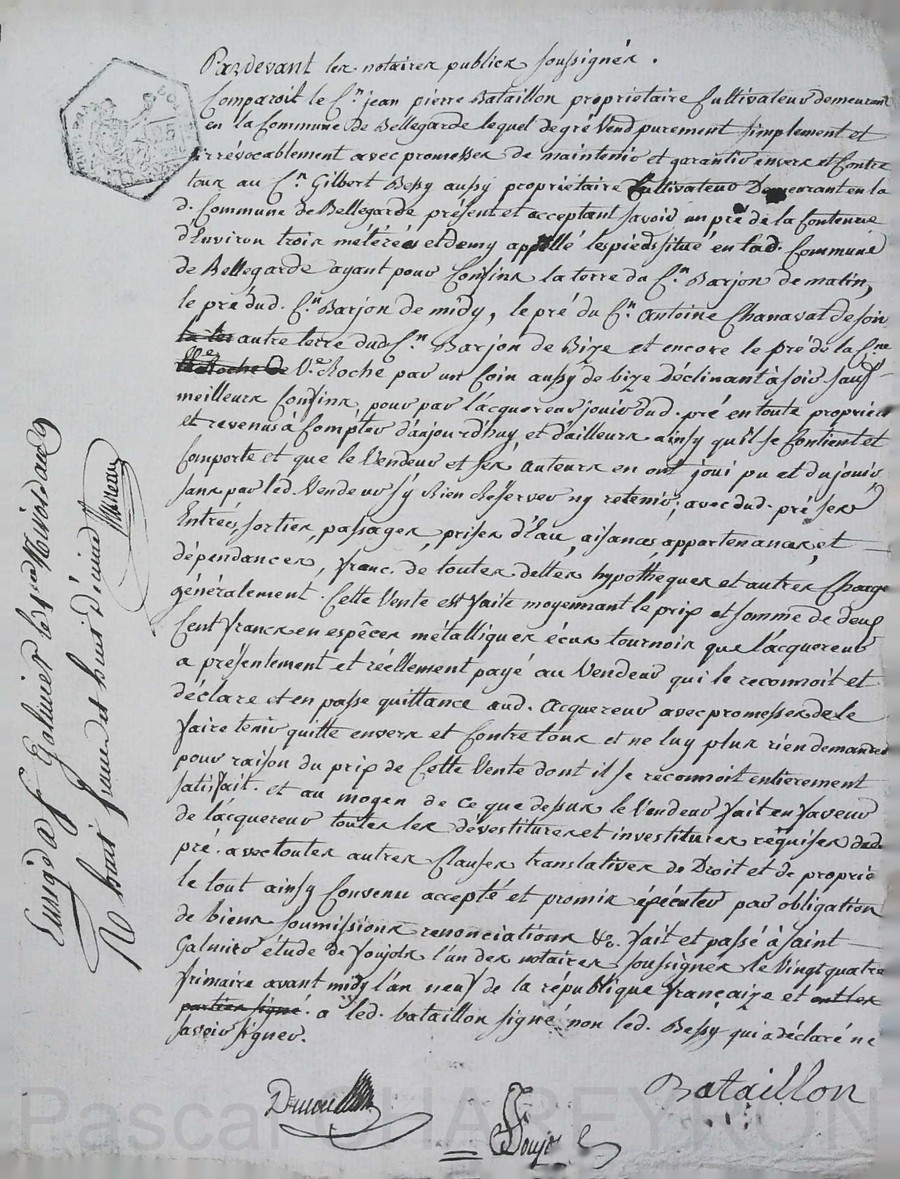 Pardevant les notaires publics soussignés.
Comparoit le Cn jean pierre Bataillon propriétaire Cultivateur demeurant
en la Commune de Bellegarde lequel de gré Vend purement simplement et
irrévocablement avec promesses de maintenir et garantir envers et Contre
tous au Cn Gilbert Bessy aussy propriétaire Cultivateur Demeurant en la
d. Commune de Bellegarde présent et acceptant savoir un pré de la Contenue
d'Environ trois métérées et demy appellé les pieds situé en lad. Commune
de Bellegarde ayant pour Confins la terre du Cn Barjon de matin,
le pré dud. Cn Barjon de midy, le pré du Cn Antoine Chanavat de soir
autre terre dud Cn Barjon de Bize et encore le pré de la Cne
Ve Roche par un Coin aussy de bize déclinant à soir sauf
meilleurs Confins, pour par l'acquereur jouir dud. pré en toute propriété
et revenus à Compter d'aujourd'huy et d'ailleurs ainsy qu'il se Contient et
Comporte et que le Vendeur et ses auteurs en ont joui pu et du jouir
sans par led. Vendeur s'y Rien Réserver ny retenir; avec dud. pré ses
Entrées, sorties, passages, prises d'Eau, aisances, appartenances, et
dépendances, franc. de toutes dettes hypothèques et autres Charges
généralement. Cette Vente est faite moyennant le prix et somme de deux
Cent francs en espêces métalliques écus tournois que l'acquereur
a présentement et réellement payé au Vendeur qui le reconnoit et
déclare et en passe quittance aud. acquereur avec promesses de le
faire tenir quitte envers et Contre tous et ne luy plus rien demander
pour raison du prix de Cette Vente dont il se reconnoit entièrement
satisfait. et au moyen de ce que dessus le Vendeur fait en faveur
de l'acquereur toutes les dévestitures et investitures réquises dud.
pré. avec toutes autres Clauses translatives de Droit et de propriété
le tout ainsy Convenu accepté et promis éxécuter par obligation
de biens soumissions renonciations &c. fait et passé à saint
Galmier étude de Soujols l'un des notaires soussignés le Vingt quatre
frimaire avant midy l'an neuf de la république françaize et ont les
parties signé. a led. bataillon signé non led. Bessy qui a déclaré ne
savoir signer.
Bataillon
Enrg à St Galmier le
Rt huit francs et huit décimes